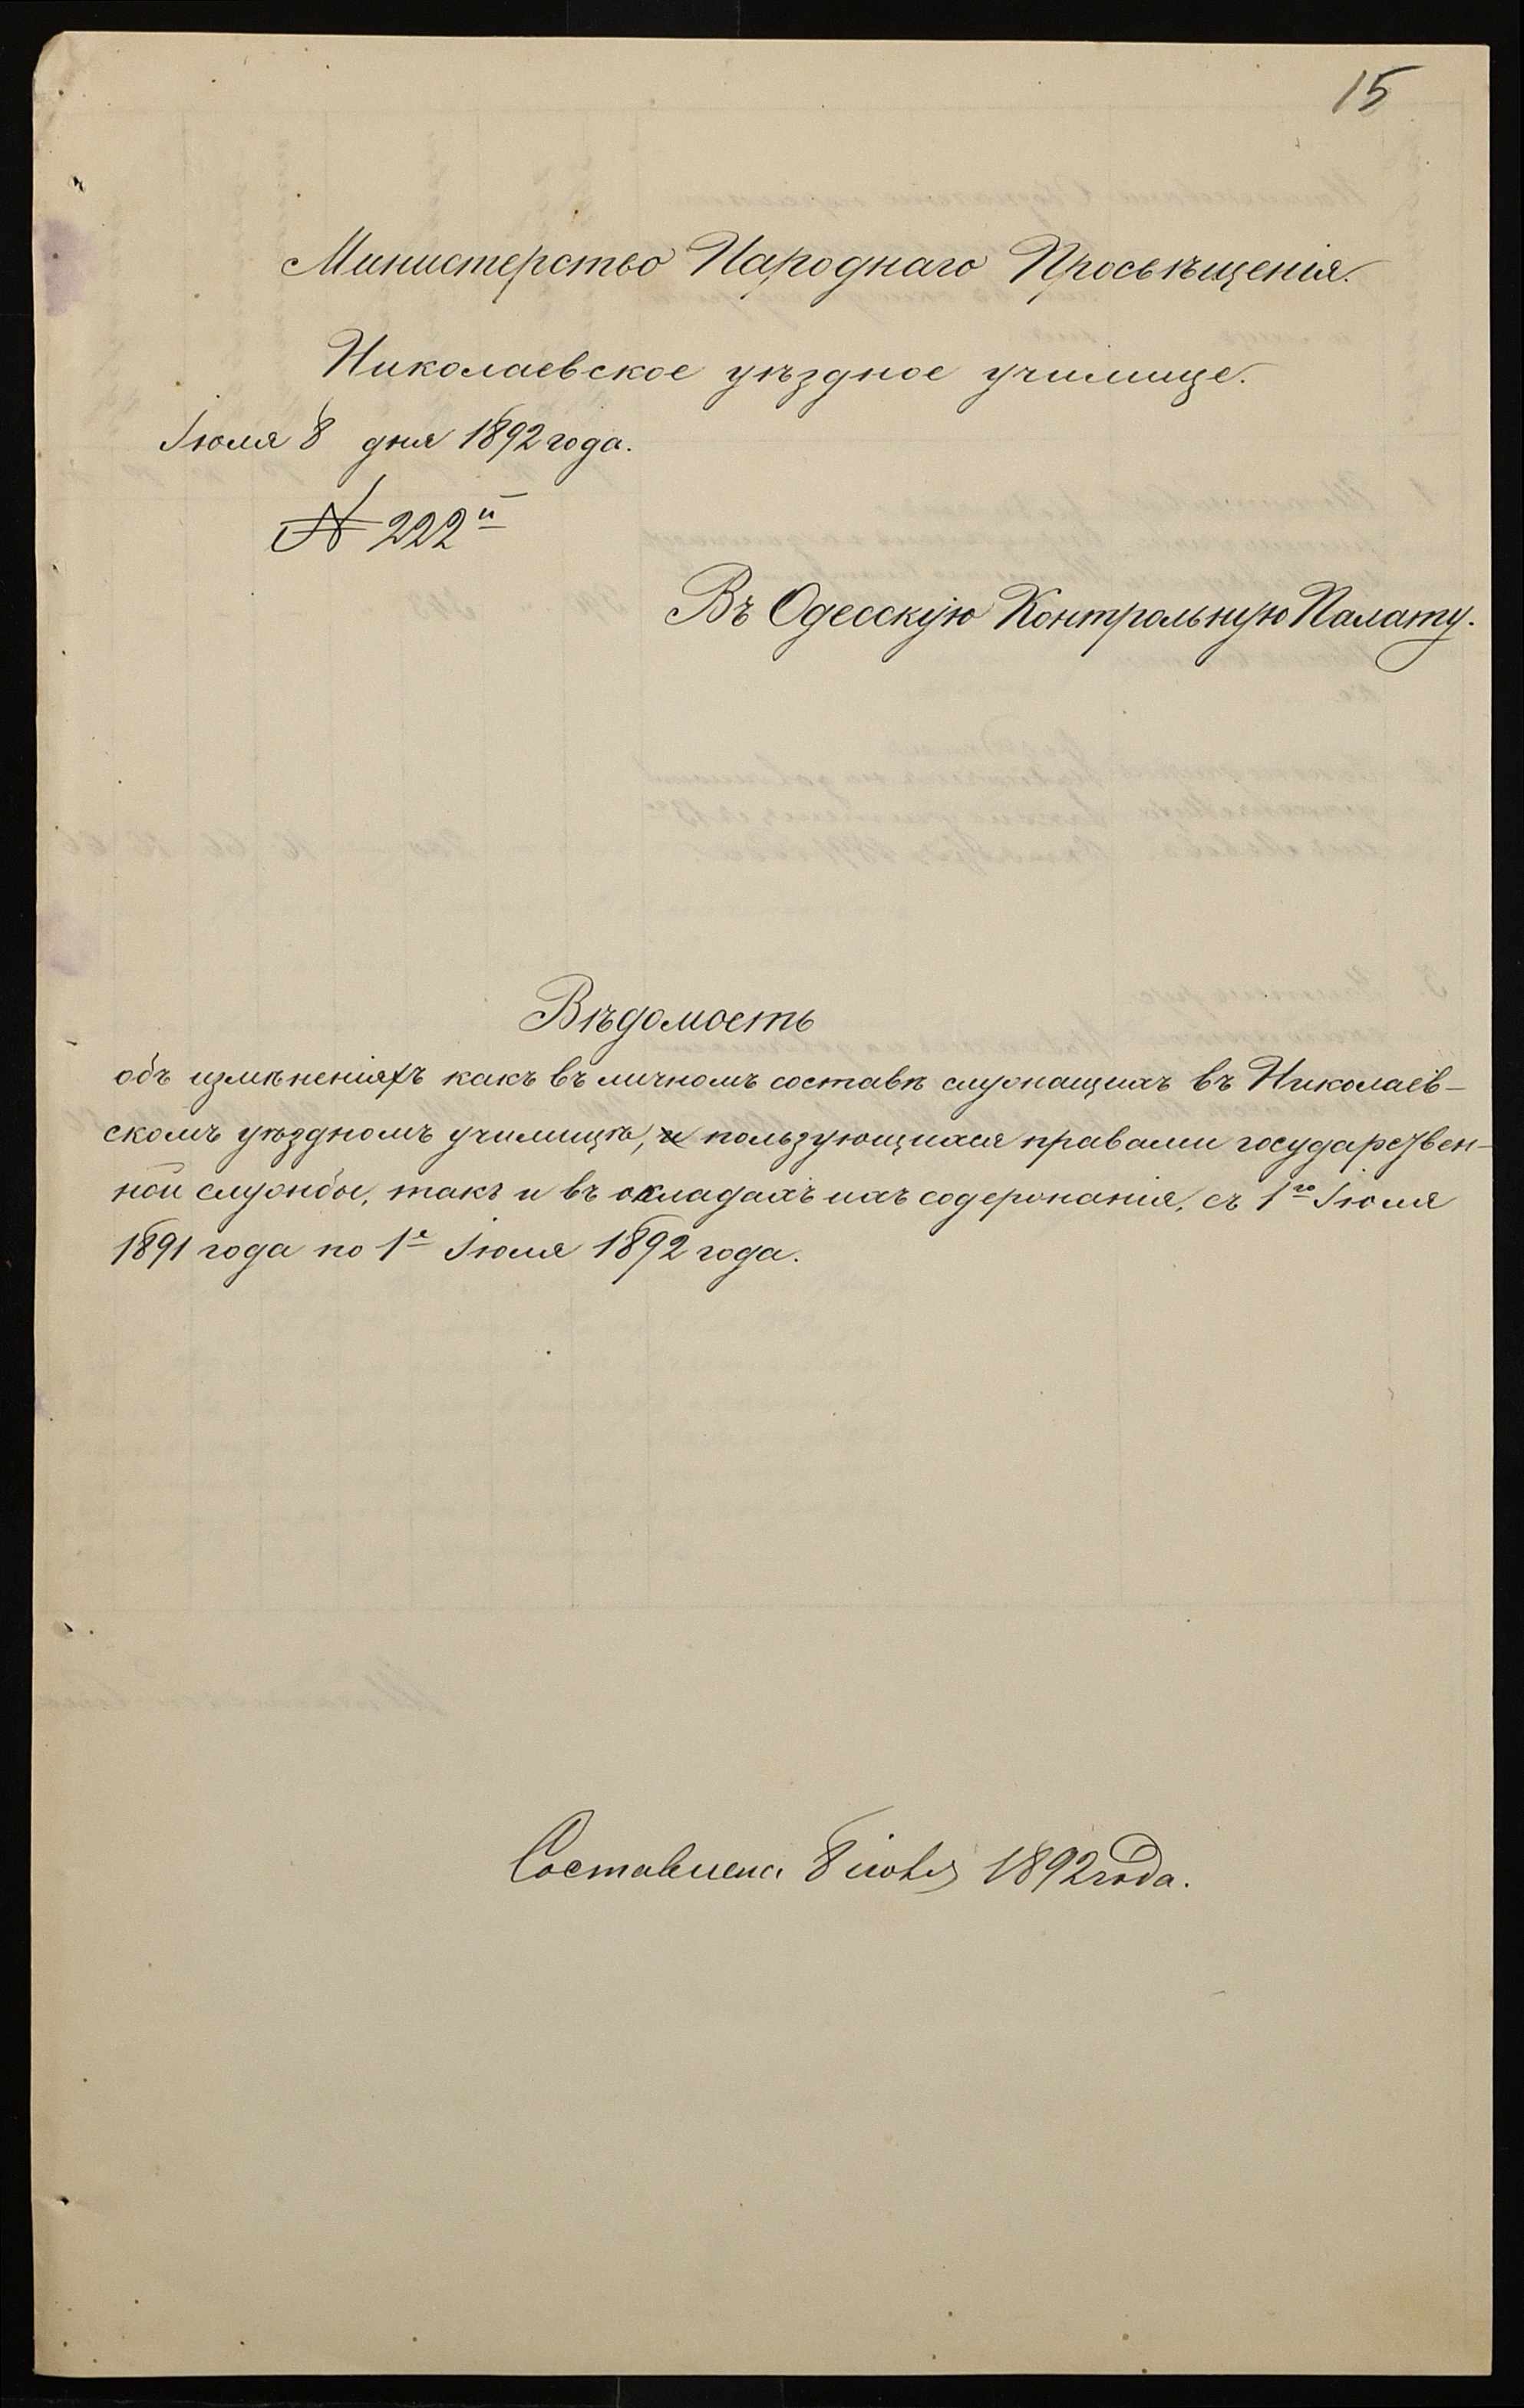 15
Министерство Народнаго Просвѣщенія.
Николаевское уѣздное училище.
Іюля 8 дня 1892 года.
№ 222й
Въ Одесскую Контрольную Палату.
Вѣдомость
объ измѣненіяхъ какъ въ личномъ составѣ служащихъ въ Николаев-
скомъ уѣздномъ училищѣ, и пользующихся правами государствен-
ной службы, такъ и въ окладахъ ихъ содержанія, съ 1го Іюля
1891 года по 1е Іюля 1892 года.
Составлена 8 іюля 1892 года.